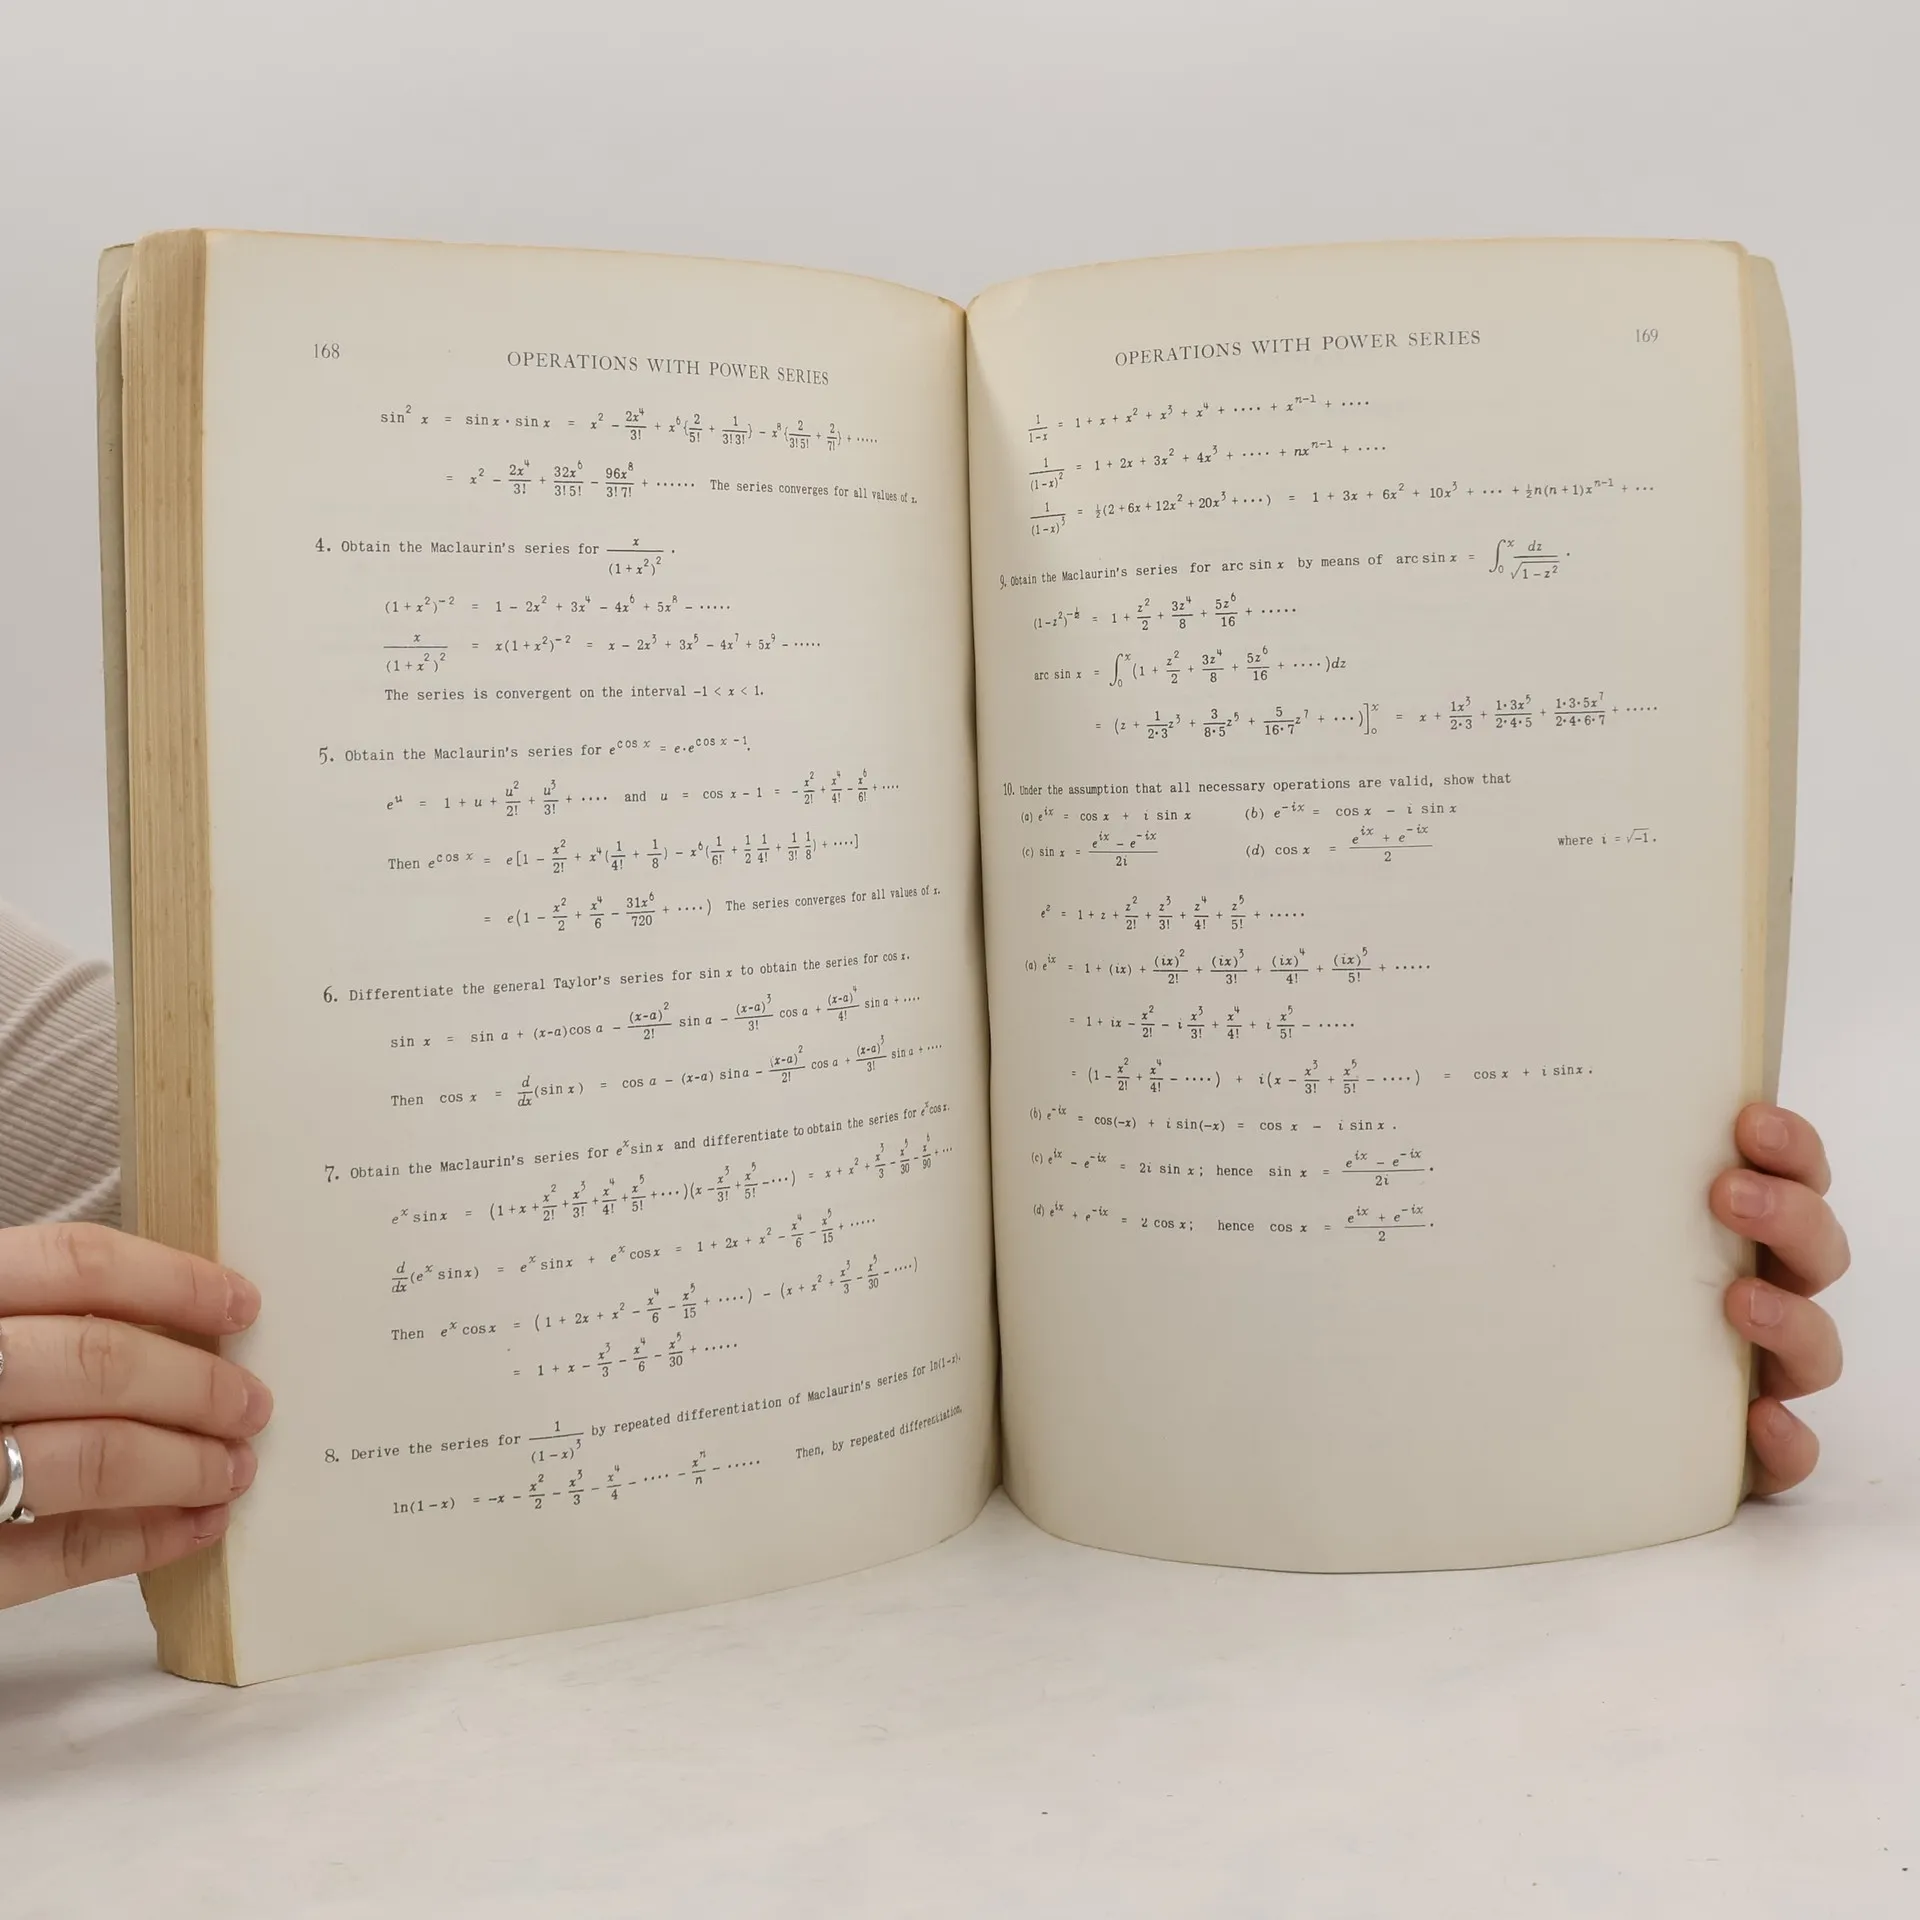 168
OPERATIONS WITH POWER SERIES
sin² x = sin x · sin x = x² − 2x⁴/3! + x⁶{2/5! + 1/3!3!} − x⁸{2/3!5! + 2/7!} + .....
= x² − 2x⁴/3! + 32x⁶/3!5! − 96x⁸/3!7! + ...... The series converges for all values of x.
4. Obtain the Maclaurin's series for x/(1+x²)².
(1+x²)⁻² = 1 − 2x² + 3x⁴ − 4x⁶ + 5x⁸ − .....
x/(1+x²)² = x(1+x²)⁻² = x − 2x³ + 3x⁵ − 4x⁷ + 5x⁹ − .....
The series is convergent on the interval −1 < x < 1.
5. Obtain the Maclaurin's series for e^(cos x) = e·e^(cos x −1).
e^u = 1 + u + u²/2! + u³/3! + .... and u = cos x − 1 = −x²/2! + x⁴/4! − x⁶/6! + ....
Then e^(cos x) = e[1 − x²/2! + x⁴(1/4! + 1/8) − x⁶(1/6! + 1/2 1/4! + 1/3! 1/8) + ....]
= e(1 − x²/2 + x⁴/6 − 31x⁶/720 + ....) The series converges for all values of x.
6. Differentiate the general Taylor's series for sin x to obtain the series for cos x.
sin x = sin a + (x−a)cos a − (x−a)²/2! sin a − (x−a)³/3! cos a + (x−a)⁴/4! sin a + ....
Then cos x = d/dx(sin x) = cos a − (x−a) sin a − (x−a)²/2! cos a + (x−a)³/3! sin a + ....
7. Obtain the Maclaurin's series for eˣ sin x and differentiate to obtain the series for eˣ cos x.
eˣ sin x = (1 + x + x²/2! + x³/3! + x⁴/4! + x⁵/5! + ...)(x − x³/3! + x⁵/5! − ...) = x + x² + x³/3 − x⁵/30 − x⁶/90 + ...
d/dx(eˣ sin x) = eˣ sin x + eˣ cos x = 1 + 2x + x² − x⁴/6 − x⁵/15 + .....
Then eˣ cos x = (1 + 2x + x² − x⁴/6 − x⁵/15 + ....) − (x + x² + x³/3 − x⁵/30 − ....)
= 1 + x − x³/3 − x⁴/6 − x⁵/30 + .....
8. Derive the series for 1/(1−x)³ by repeated differentiation of Maclaurin's series for ln(1−x).
ln(1−x) = −x − x²/2 − x³/3 − x⁴/4 − .... − xⁿ/n − ..... Then, by repeated differentiation,
OPERATIONS WITH POWER SERIES
169
1/(1−x) = 1 + x + x² + x³ + x⁴ + .... + xⁿ⁻¹ + ....
1/(1−x)² = 1 + 2x + 3x² + 4x³ + .... + nxⁿ⁻¹ + ....
1/(1−x)³ = ½(2 + 6x + 12x² + 20x³ + ...) = 1 + 3x + 6x² + 10x³ + ... + ½n(n+1)xⁿ⁻¹ + ...
9. Obtain the Maclaurin's series for arc sin x by means of arc sin x = ∫₀ˣ dz/√(1−z²).
(1−z²)^(−½) = 1 + z²/2 + 3z⁴/8 + 5z⁶/16 + .....
arc sin x = ∫₀ˣ (1 + z²/2 + 3z⁴/8 + 5z⁶/16 + ....)dz
= (z + 1/2·3 z³ + 3/8·5 z⁵ + 5/16·7 z⁷ + ...)]₀ˣ = x + 1x³/2·3 + 1·3x⁵/2·4·5 + 1·3·5x⁷/2·4·6·7 + .....
10. Under the assumption that all necessary operations are valid, show that
(a) e^(ix) = cos x + i sin x (b) e^(−ix) = cos x − i sin x
(c) sin x = (e^(ix) − e^(−ix))/2i (d) cos x = (e^(ix) + e^(−ix))/2 where i = √−1.
e^z = 1 + z + z²/2! + z³/3! + z⁴/4! + z⁵/5! + .....
(a) e^(ix) = 1 + (ix) + (ix)²/2! + (ix)³/3! + (ix)⁴/4! + (ix)⁵/5! + .....
= 1 + ix − x²/2! − i x³/3! + x⁴/4! + i x⁵/5! − .....
= (1 − x²/2! + x⁴/4! − ....) + i(x − x³/3! + x⁵/5! − ....) = cos x + i sin x.
(b) e^(−ix) = cos(−x) + i sin(−x) = cos x − i sin x.
(c) e^(ix) − e^(−ix) = 2i sin x; hence sin x = (e^(ix) − e^(−ix))/2i.
(d) e^(ix) + e^(−ix) = 2 cos x; hence cos x = (e^(ix) + e^(−ix))/2.